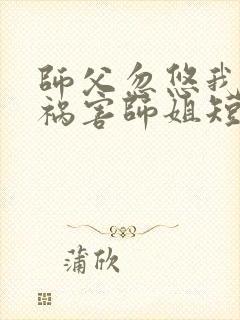 師父忽悠我
祸害師姐短
蒲欣